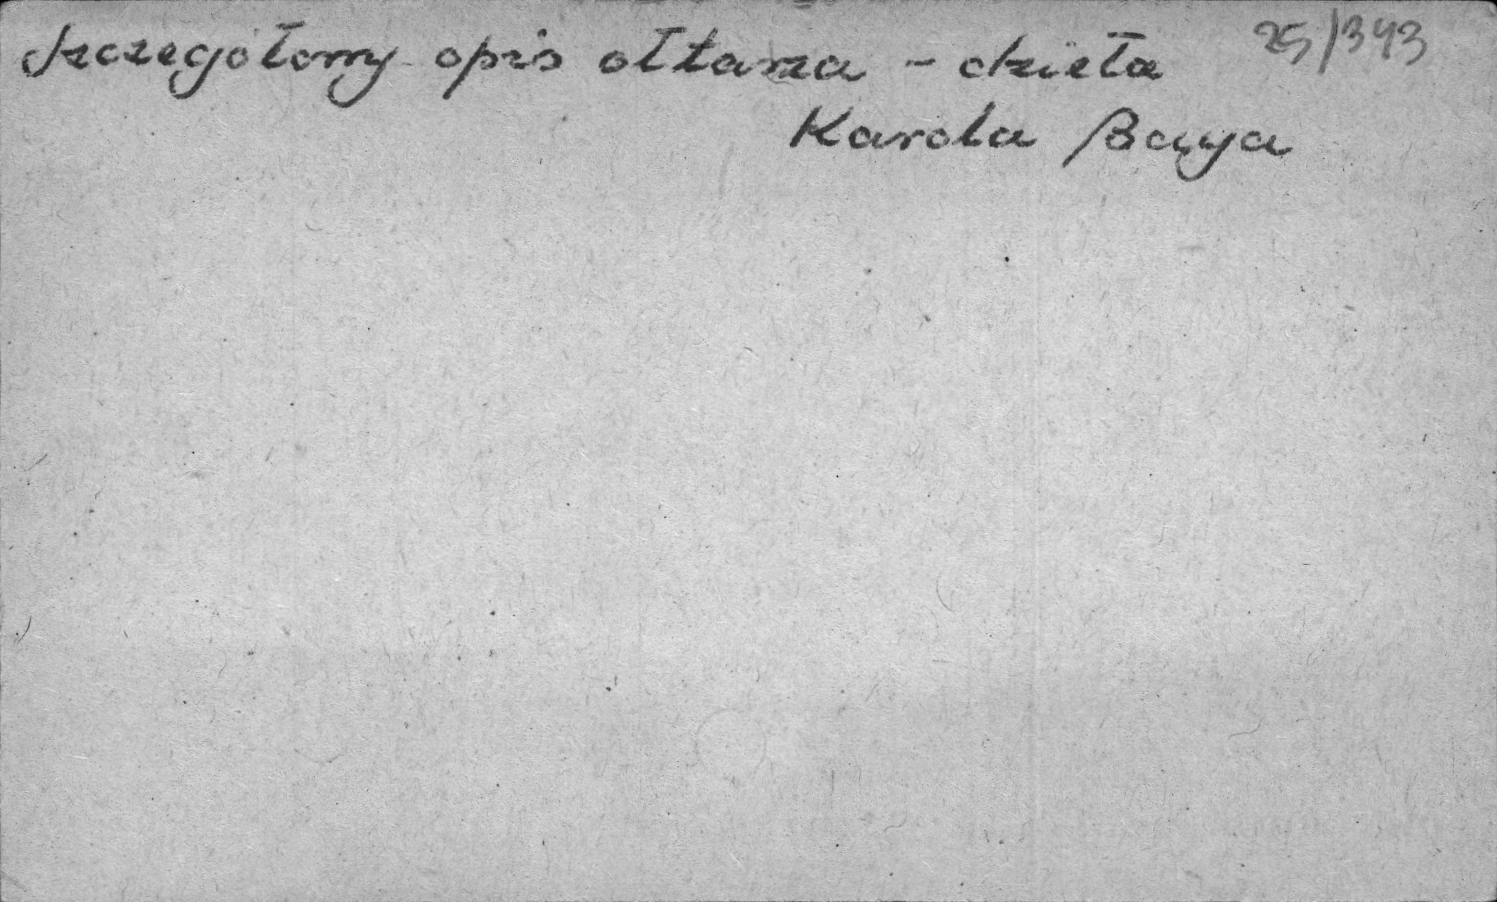 Szczegółowy opis ołtarza - dzieła 25/343
Karola Baya